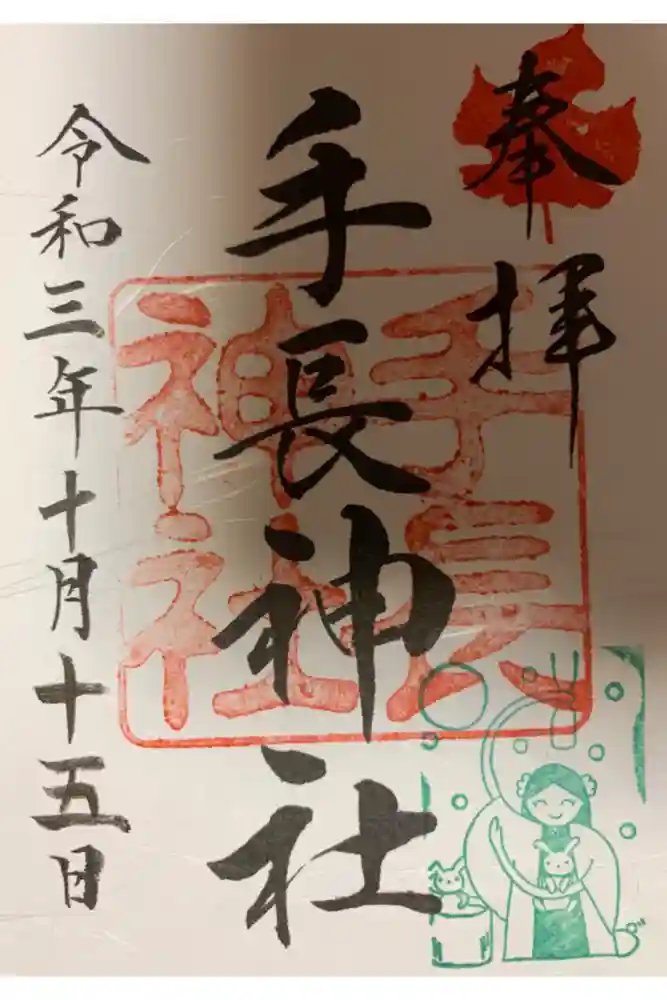 奉拝
手長神社
手長神社
令和三年十月十五日